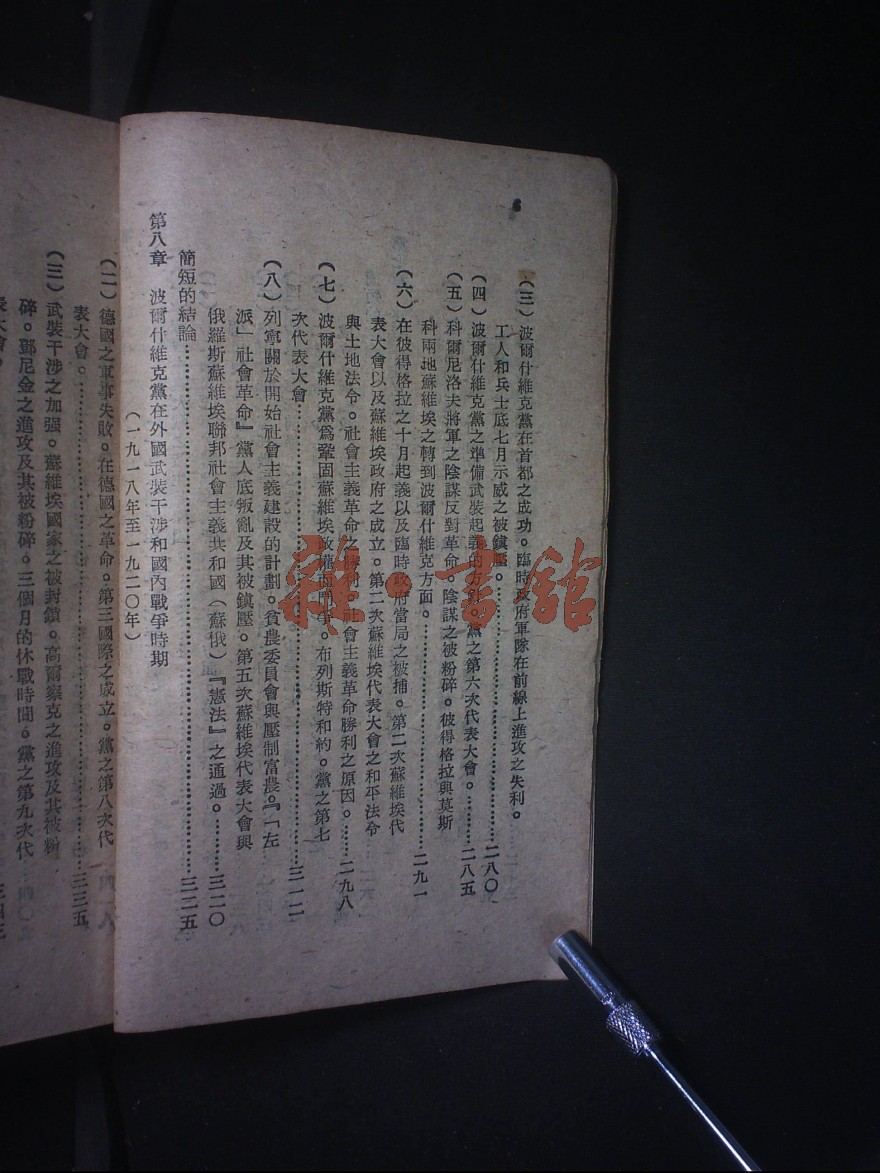 (三)波爾什維克黨在首都之成功。臨時政府軍隊在前線上進攻之失利。
工人和兵士底七月示威之被鎮壓。……二八〇
(四)波爾什維克黨之準備武裝起義的方針。黨之第六次代表大會。……二八五
(五)科爾尼洛夫將軍之陰謀反對革命。陰謀之被粉碎。彼得格拉與莫斯
科兩地蘇維埃之轉到波爾什維克方面。……二九一
(六)在彼得格拉之十月起義以及臨時政府當局之被捕。第二次蘇維埃代
表大會以及蘇維埃政府之成立。第二次蘇維埃代表大會之和平法令
與土地法令。社會主義革命之勝利。社會主義革命勝利之原因。……二九八
(七)波爾什維克黨爲鞏固蘇維埃政權而鬥爭。布列斯特和約。黨之第七
次代表大會……三一二
(八)列寧關於開始社會主義建設的計劃。貧農委員會與壓制富農。『「左
派」社會革命』黨人底叛亂及其被鎮壓。第五次蘇維埃代表大會與
俄羅斯蘇維埃聯邦社會主義共和國(蘇俄)『憲法』之通過。……三二〇
簡短的結論……三二五
第八章 波爾什維克黨在外國武裝干涉和國內戰爭時期
(一九一八年至一九二〇年)
(二)德國之軍事失敗。在德國之革命。第三國際之成立。黨之第八次代
表大會。……三三五
(三)武裝干涉之加强。蘇維埃國家之被封鎖。高爾察克之進攻及其被粉
碎。鄧尼金之進攻及其被粉碎。三個月的休戰時間。黨之第九次代
表大會。
雜·書館